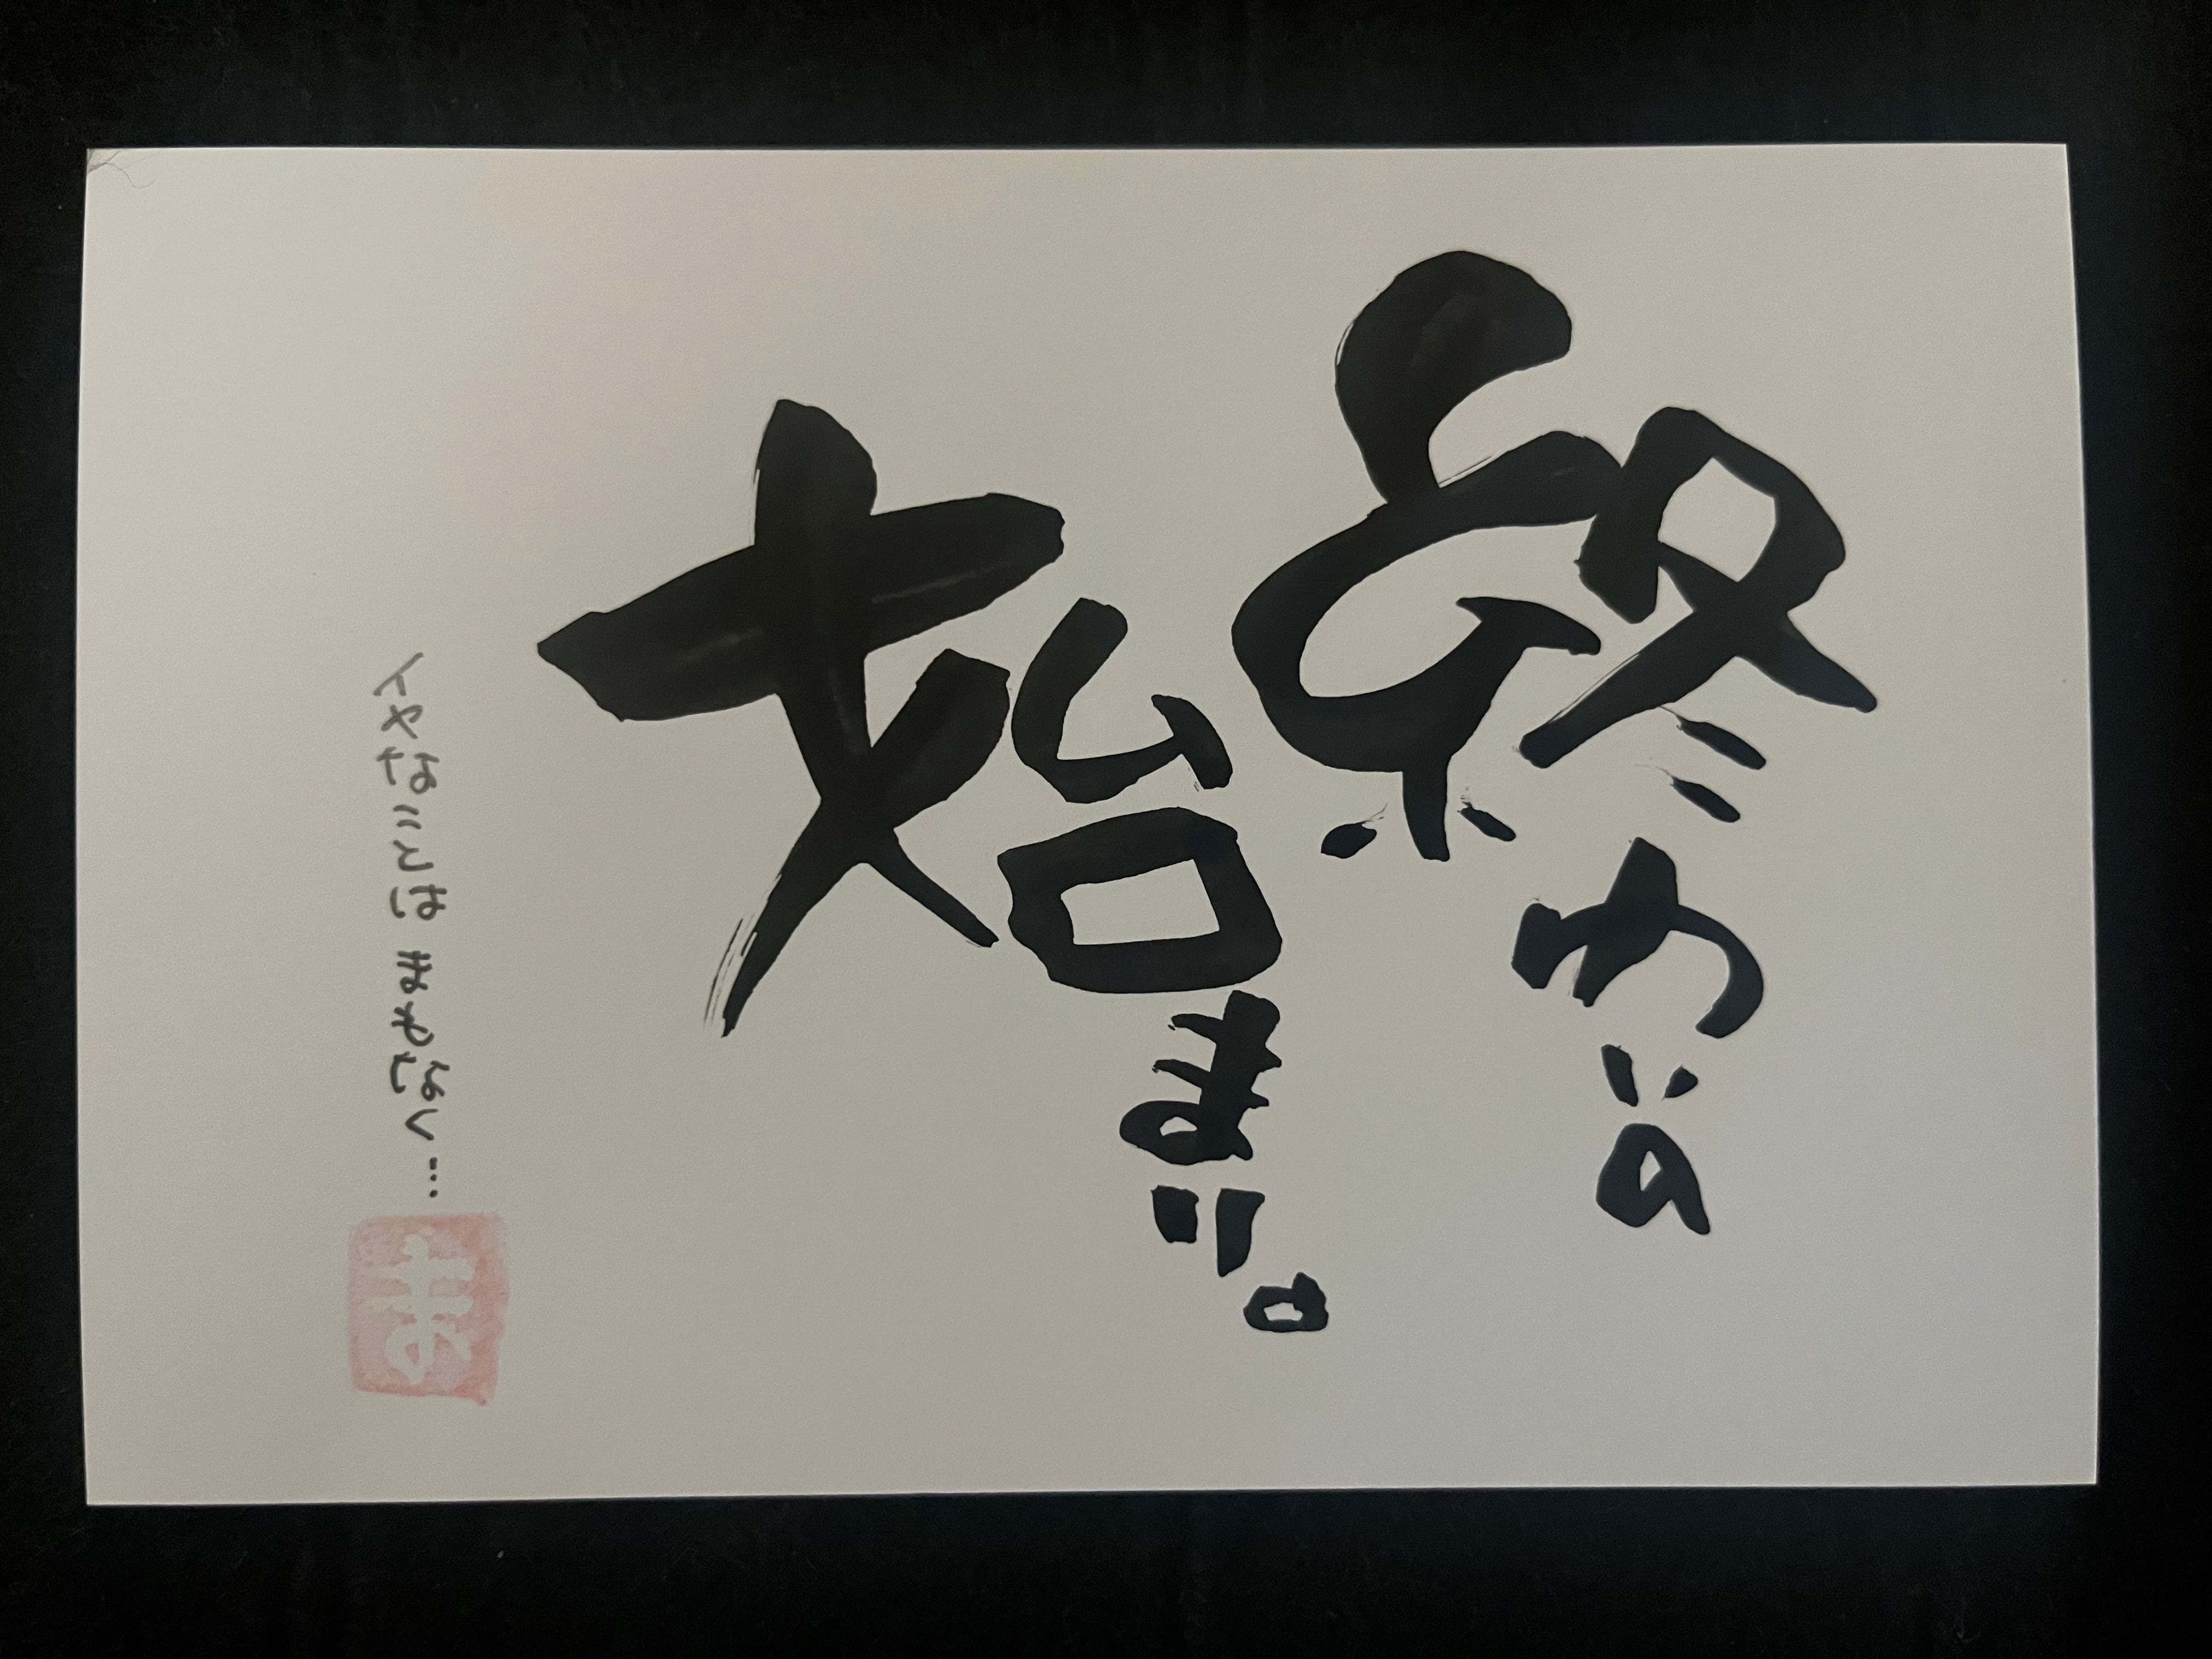 終わりの
始まり。
イヤなことは まもなく…
ま